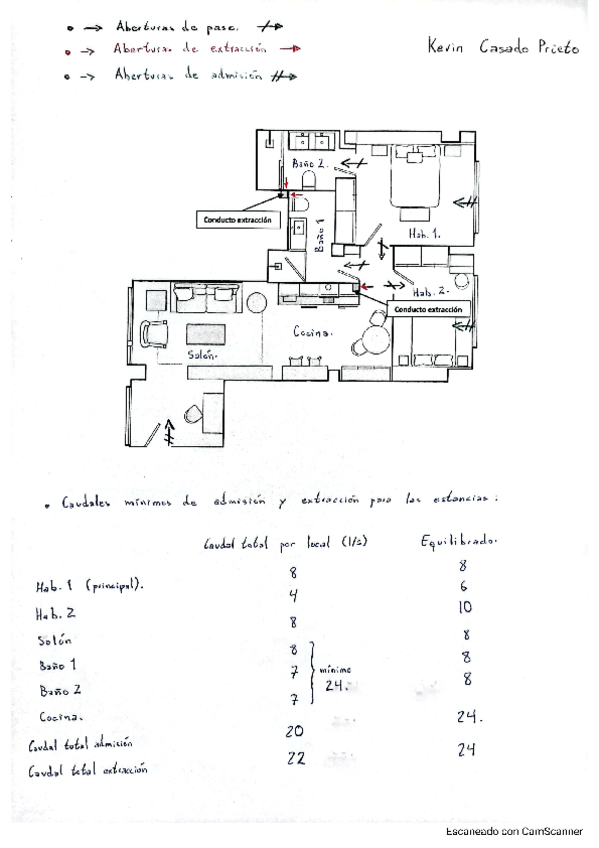 • → Aberturas de paso.
• → Aberturas de extracción
• → Aberturas de admisión
Kevin Casado Prieto
Baño 2.
Conducto extracción
Baño 1
Hab. 1.
Hab. 2.
Conducto extracción
Cocina.
Salón.
• Caudales mínimos de admisión y extracción para las estancias:
Caudal total por local (l/s) Equilibrado.
Hab. 1 (principal). 8 8
Hab. 2 4 6
Salón 8 10
Baño 1 8 8
Baño 2 7 mínimo 24. 8
Cocina. 7 8
Caudal total admisión 20 24.
Caudal total extracción 22 24
Escaneado con CamScanner